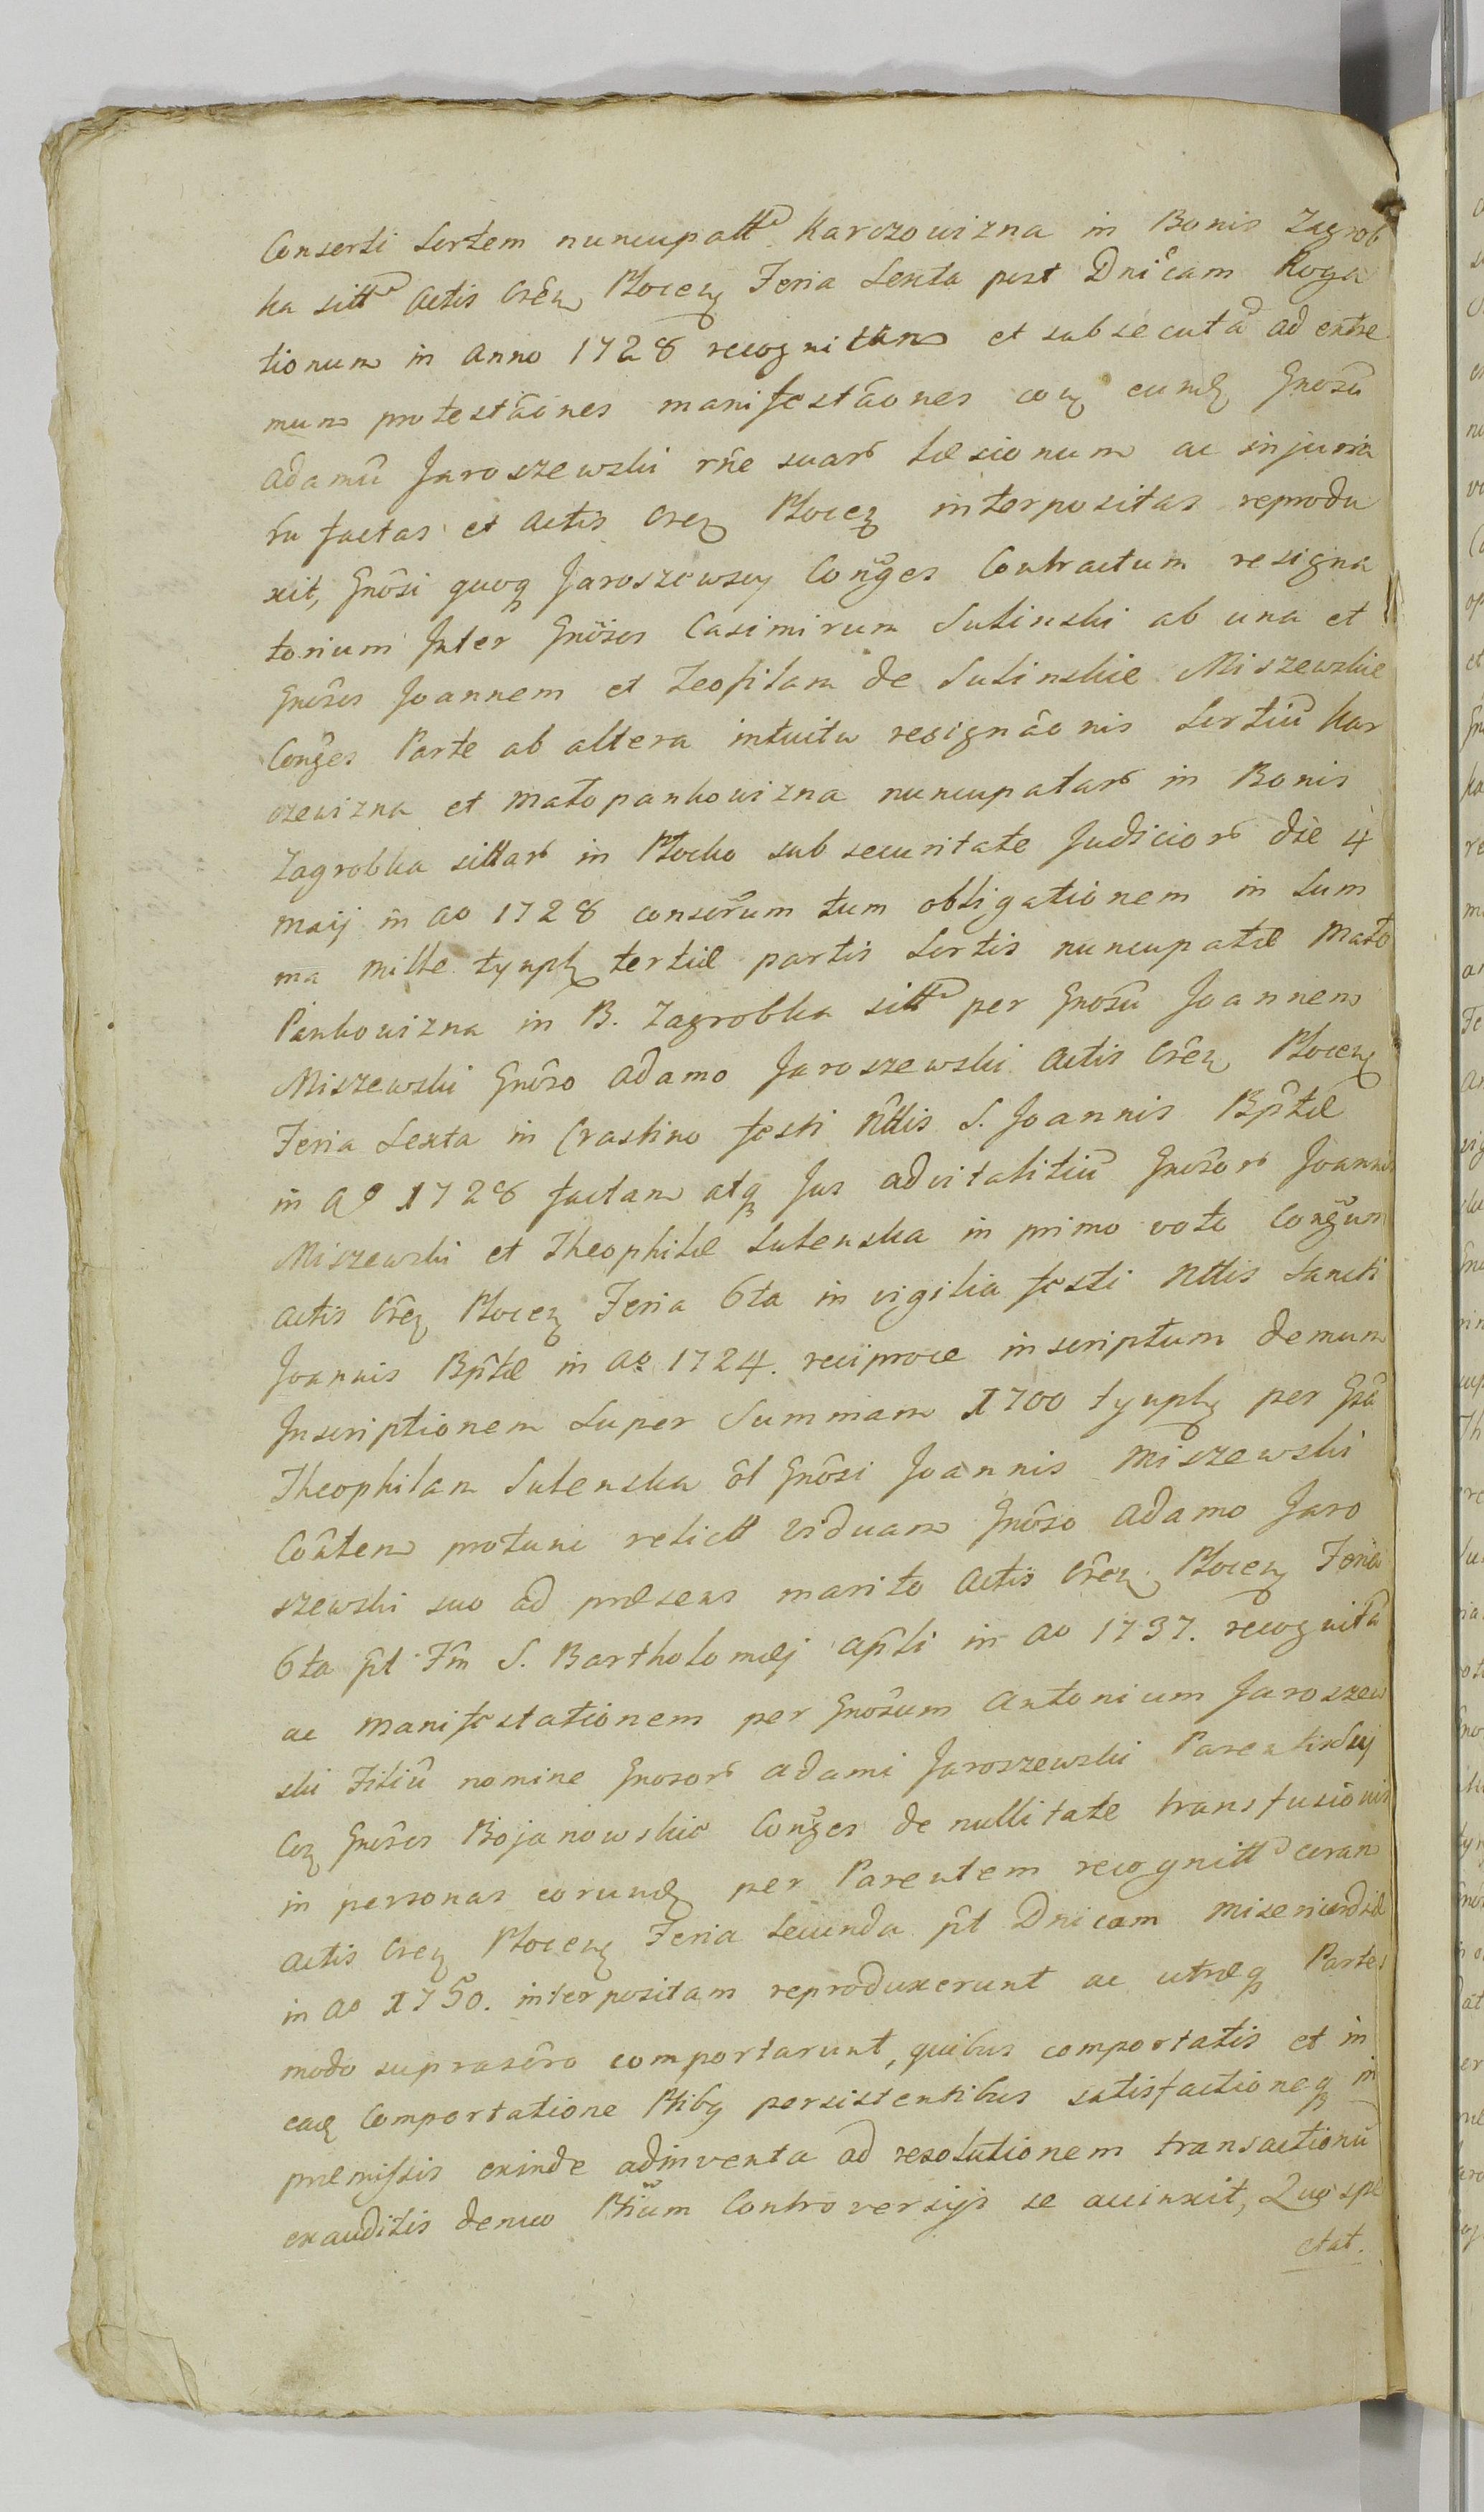 Conserti Sortem nuncupatt. Karczowizna in Bonis Zagrob
ka sitt. Actis Crên Plocen Feria Sexta post Dnîcam Roga
tionum in Anno 1728 recognitam et subsecutâ ad extre
mum protestâones manifestâones coñ eund Gnosũ
Adamũ Jaroszewski rñe suar læsionum ac injuria
ru factas et Actis Cren Plocen interpositas reprodu
xit, Gnôsi quoq Jaroszewscy Conges Contractum resigna
torium Inter Gnôsos Casimirum Sulinski ab una et
Gnôsos Joannem et Teofilam de Sulinskie Miszewskie
Conges Parte ab altera intuitu resignâonis Sortiũ Kar
czewizna et Małopankowizna nuncupatar in Bonis
Zagrobka sittar in Płocko sub securitate Judicior die 4
Maij in Ao 1728 conserum tum obligationem in Sum
ma mille tynph tertiæ partis Sortis nuncupatæ Mało
Pankowizna in B. Zagrobka sitt per Gnosũ Joannem
Miszewski Gnôso Adamo Jaroszewski Actis Crên Plocen
Feria Sexta in Crastino festi Nttis S. Joannis Bptæ
in Ao 1728 factam atq Jus advitalitiũ Gnosor Joannis
Miszewski et Theophilæ Sulenska in primo voto Congum
Actis Crên Plocen Feria 6ta in vigilia festi Nttis Sancti
Joannis Bptæ in Ao 1724. reciproce inscriptum demum
Inscriptionem Super Summam 1700 tynph per Gsâ
Theophilam Sulenska ôl Gnôsi Joannis Miszewski
Côñtem protunc relict Viduam Gnôso Adamo Jaro
szewski suo ad præsens marito Actis Crên Plocen Feria
6ta p̂t Fm̂ S. Bartholomæj Ap̂li in Ao 1737. recognitâ
ac Manifestationem per Gnosum Antonium Jaroszew
ski Filiũ nomine Gnosor Adami Jaroszewski Parentis Suj
Coñ Gnôsos Bojanowskie Conges de nullitate transfusionis
in personas eorund per Parentem recognitt coram
Actis Cren Plocen Feria Secunda p̂t Dnicam Misericordiæ
in Ao 1750. interpositam reproduxerunt ac utræq Partes
modo suprascrô comportarunt, quibus comportatis et in
ead Comportatione Ptibq persistentibus satisfactioneq in
præmissis exinde adinventa ad resolutionem transactionũ
exauditis denuo Ptium Controversijs se accinxit, Quo spe
ctat.